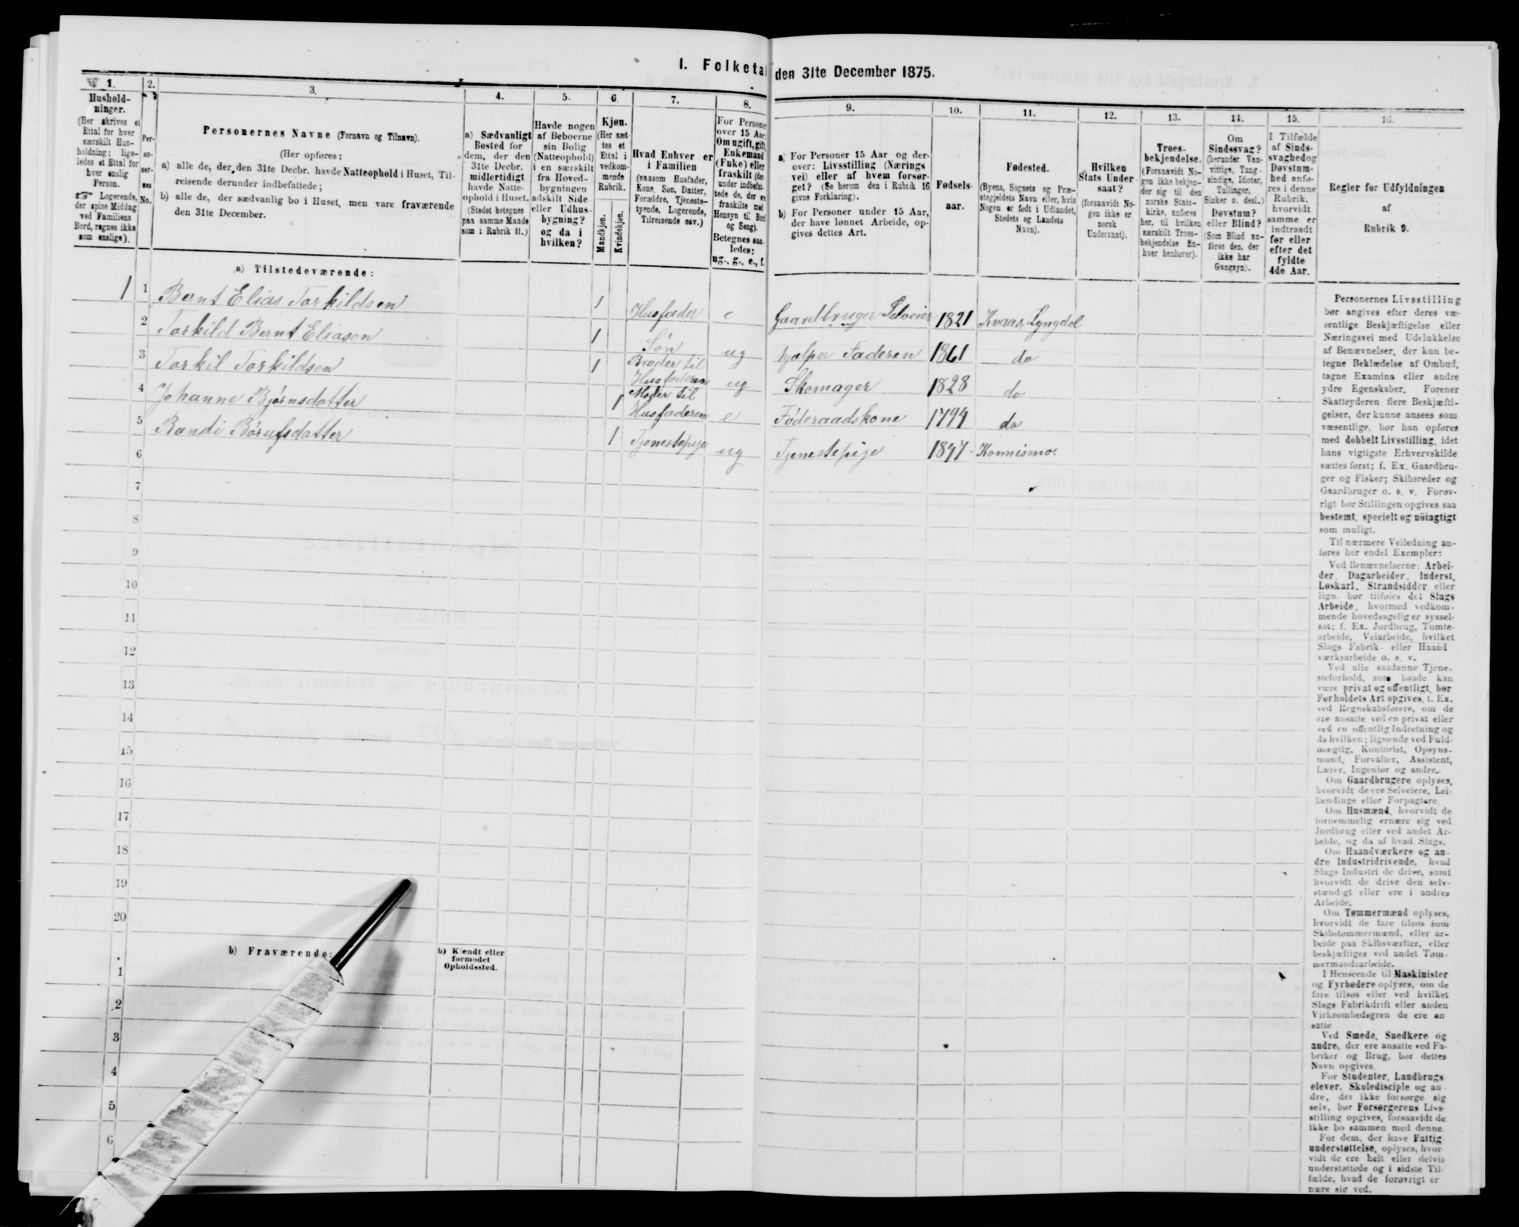 I. Folketal den 31te December 1875.
1.
Husholdninger.
(Her skrives et Ettal for hver særskilt Husholdning; ligeledes et Ettal for hver enslig Person.
Logerende, der spise Middag ved Familiens Bord, regnes ikke som enslige).
2.
Personernes No.
3.
Personernes Navne (Fornavn og Tilnavn).
(Her opføres:
a) alle de, der den 31te Decbr. havde Natteophold i Huset, Tilreisende derunder indbefattede;
b) alle de, der sædvanlig bo i Huset, men vare fraværende den 31te December.
4.
a) Sædvanligt Bosted for dem, der den 31te Decbr. midlertidigt havde Natteophold i Huset.
(Stedet betegnes paa samme Maade som i Rubrik 11.)
5.
Havde nogen af Beboerne sin Bolig (Natteophold) i en særskilt fra Hovedbygningen adskilt Side eller Udhusbygning? og da i hvilken?
6.
Kjøn.
(Her sættes et Ettal i vedkommende Rubrik.
Mandkjøn.
Kvindekjøn.
7.
Hvad Enhver er i Familien
(saasom Husfader, Kone, Søn, Datter, Forældre, Tjenestetyende, Logerende, Tilreisende osv.)
8.
For Personer over 15 Aar: Om ugift, gift, Enkemand (Enke) eller fraskilt
Betegnes saaledes: ug., g., e., f.
9.
a) For Personer 15 Aar og derover: Livsstilling (Næringsvei) eller af hvem forsørget? (Se herom den i Rubrik 16 givne Forklaring).
b) For Personer under 15 Aar, der have lønnet Arbeide, opgives dettes Art.
10.
Fødselsaar.
11.
Fødested.
(Byens, Sognets og Præstegjeldets Navn eller, hvis Nogen er født i Udlandet, Stedets og Landets Navn).
12.
Hvilken Stats Undersaat?
(forsaavidt Nogen ikke er norsk Undersaat).
13.
Troesbekjendelse.
(Forsaavidt Nogen ikke bekjender sig til den norske Statskirke, anføres her, til hvilken særskilt Troesbekjendelse Enhver henhører).
14.
Om Sindssvag?
(herunder Vanvittige, Tungsindige, Idioter, Tullinger, Sinker o. desl.)
Døvstum? eller Blind?
(Som Blind anføres den, der ikke har Gangsyn).
15.
I Tilfælde af Sindssvaghed og Døvstumhed anføres i denne Rubrik, hvorvidt samme er indtraadt før eller efter det fyldte 4de Aar.
16.
Regler for Udfyldningen
af
Rubrik 9.
a) Tilstedeværende:
1 1 Bernt Elias Torkildsen 1 Husfader e Gaardbruger Selveier 1821 Kvaas, Lyngdal
2 Torkild Bernt Eliasen 1 Søn ug hjælper Faderen 1861 do
3 Torkil Torkildsen 1 Broder til Husfaderen ug Skomager 1828 do
4 Johanne Bjørnsdatter 1 Moder til Husfaderen e Føderaadskone 1794 do
5 Randi Børufsdatter 1 Tjenestepige ug Tjenestepige Konnismo.
6
7
8
9
10
11
12
13
14
15
16
17
18
19
20
b) Fraværende:
b) Kjendt eller formodet Opholdssted.
1
2
3
4
5
6
Personernes Livsstilling
bør angives efter deres væ-
sentlige Beskjæftigelse eller
Næringsvei med Udelukkelse
af Benævnelser, der kun be-
tegne Beklædelse af Ombud,
tagne Examina eller andre
ydre Egenskaber. Forener
Skatteyderen flere Beskjæfti-
gelser, der kunne ansees som
væsentlige, bør han opføres
med dobbelt Livsstilling, idet
hans vigtigste Erhvervskilde
sættes først; f. Ex. Gaardbru-
ger og Fisker; Skibsreder og
Gaardbruger o. s. v. Forøv-
rigt bør Stillingen opgives saa
bestemt, specielt og nøiagtigt
som muligt.
Til nærmere Veiledning an-
føres her endel Exempler:
Ved Benævnelserne: Arbei-
der, Dagarbeider, Inderst,
Løskarl, Strandsidder eller
lign. bør tilføies det Slags
Arbeide, hvormed vedkom-
mende hovedsagelig er syssel-
sat; f. Ex. Jordbrug, Tomte-
arbeide, Veiarbeide, hvilket
Slags Fabrik- eller Haand-
værksarbeide o. s. v.
Ved alle saadanne Tjene-
steforhold, som baade kan
være privat og offentligt, bør
Forholdets Art opgives, f. Ex.
ved Regnskabsførere, om de
ere ansatte ved en privat eller
ved en offentlig Indretning og
da hvilken; lignende ved Fuld-
mægtig, Kontorist, Opsyns-
mand, Forvalter, Assistent,
Lærer, Ingeniør og andre.
Om Gaardbrugere oplyses,
hvorvidt de ere Selveiere, Lei-
lændinge eller Forpagtere.
Om Husmænd, hvorvidt de
fornemmelig ernære sig ved
Jordbrug eller ved andet Ar-
beide, og da af hvad Slags.
Om Haandværkere og an-
dre Industridrivende, hvad
Slags Industri de drive, samt
hvorvidt de drive den selv-
stændigt eller ere i andres
Arbeide.
Om Tømmermænd oplyses,
hvorvidt de fare tilsøs som
Skibstømmermænd, eller ar-
beide paa Skibsværfter, eller
beskjæftiges ved andet Tøm-
mermandsarbeide.
I Henseende til Maskinister
og Fyrbødere oplyses, om de
fare tilsøs eller ved hvilket
Slags Fabrikdrift eller anden
Virksomhedsgren de ere an
satte
Ved Smede, Snedkere og
andre, der ere ansatte ved Fa-
briker og Brug, bør dettes
Navn opgives.
For Studenter, Landbrugs
elever, Skoledisciple og an
dre, der ikke forsørge sig
selv, bør Forsørgerens Livs-
stilling opgives, forsaavidt de
ikke bo sammen med denne.
For dem, der have Fattig-
understøttelse, oplyses, hvor-
vidt de ere helt eller delvis
understøttede og i sidste Til-
fælde, hvad de forøvrigt er
nære sig ved.